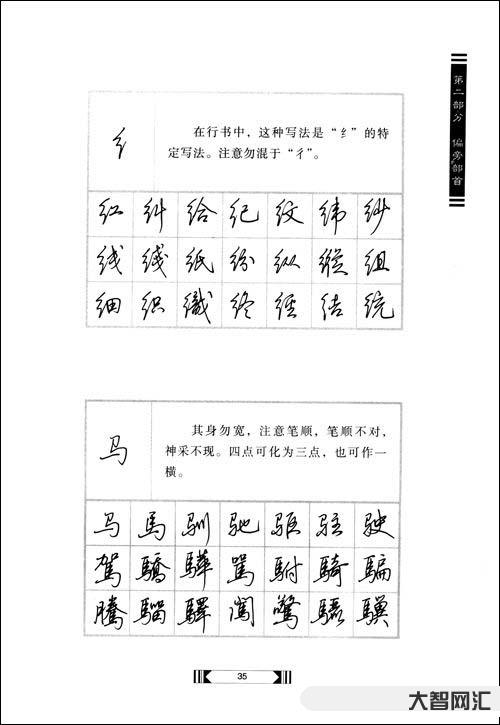 第二部分 偏旁部首
在行书中,这种写法是“纟”的特
定写法。注意勿混于“彳”。
红 纠 给 纪 纹 纬 纱
线 线 纸 纷 纵 纵 组
细 织 织 终 经 结 统
马
其身勿宽,注意笔顺,笔顺不对,
神采不现。四点可化为三点,也可作一
横。
马 馬 驯 驰 驱 驻 驶
駕 驕 驊 罵 駙 騎 騙
騰 騮 驛 闖 驚 驥
35
大智网汇